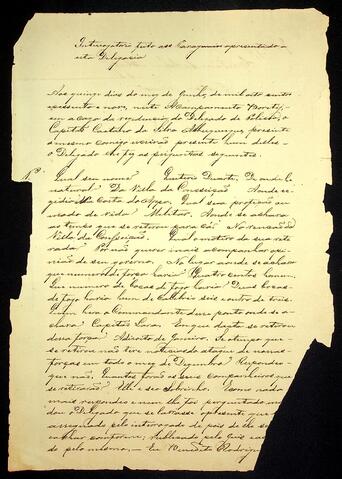 Interrogatorio feito aos Paraguaios apresentado a
esta Delegacia
Aos quinze dias do mez de Junho, de mil oito centos
sessenta e nove, neste Acampamento
em a caza de rezidencia do Delegado de Policia, o
Capitão da Silva Albuquerque, presente
o mesmo comigo escrivão presente hum delles
o Delegado lhe fez as perguntas seguintes.
1ª Qual seu nome? Duarte, de onde he
natural? Da Villa da Conceição Aonde re
zidia? Na Costa do Qual sua profisão ou
meado de vida? Militar. Aonde se achava
ao tempo que se retirou para cá? No
Villa da Conceição. Qual o motivo da sua reti
rada? Por não querer mais acompanhar
são de seu governo. No lugar aonde se achava
que numero de força havia? Quatro centos homens.
Em numero de bocas de fogo havia? Duas bocas
de fogo havia hum de Calibre seis e outro de tres.
Quem hera o Commandante dessa ponto onde se a
chava? Capitão Lara. Em que dia se retirou
dessa força? A dezoito de Janeiro. Se o tempo que
se retirou não teve noticias do ataque de nossas
forças em todo o mez de Dezembro? Respondeo
que não. Quantos forão os seus companheiros que
se retirarão? Elle e seo Sobrinho. E como nada
mais respondeo e nem lhe foi perguntado man
dou o Delegado que se lavrasse o presente que
assignado pelo interrogado depois de lhe ser
e achar conforme; rubricado pelo Juiz
do pelo mesmo, — Eu Benedito Rodrigues